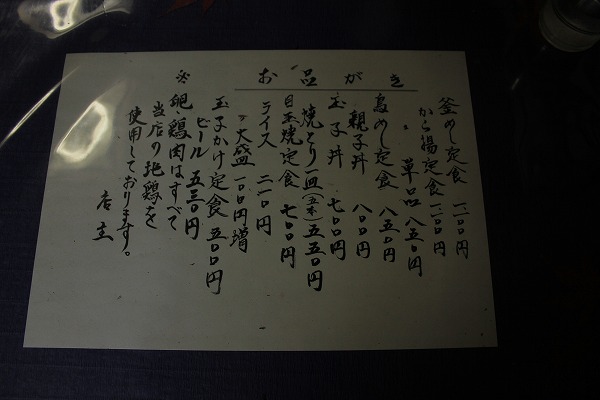 お品がき
釜めし定食 一二〇〇円
から揚定食 一二〇〇円
〃 単品 八五〇円
鳥めし定食 八五〇円
親子丼 八〇〇円
玉子丼 七〇〇円
焼とり一皿(五本)五五〇円
目玉焼定食 七〇〇円
ライス 二一〇円
〃 大盛 一〇〇円増
玉子かけ定食 五〇〇円
ビール 五三〇円
※ 卵・鶏肉はすべて
当店の地鶏を
使用しております。
店主